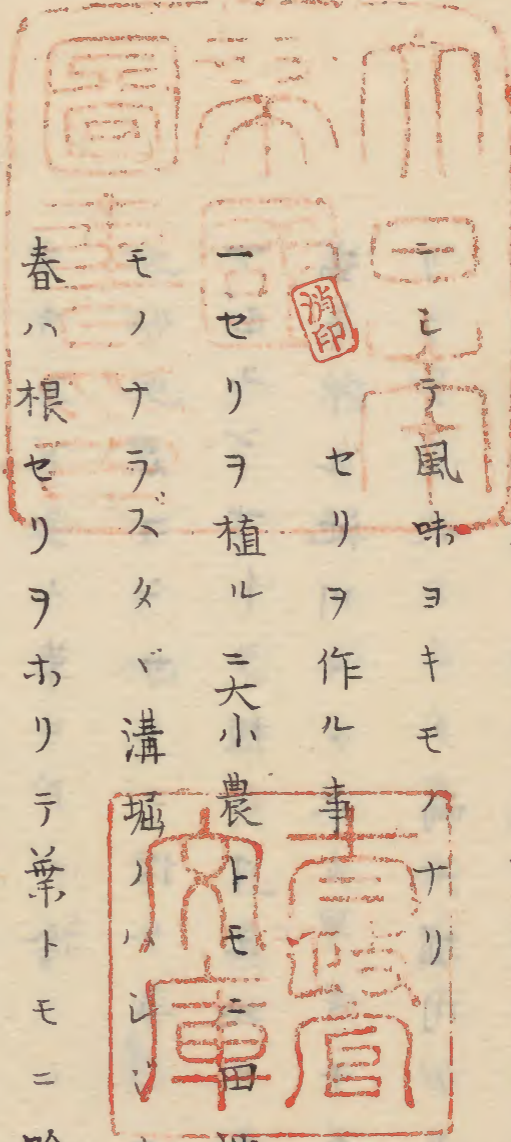 ニシテ風味ヨキモノナリ
セリヲ作ル事
一セリヲ植ル二大小農トモニ田
モノナラズタヾ溝堀ノハシ〴〵
春ハ根セリヲホリテ葉トモニ
消印
太政官文庫